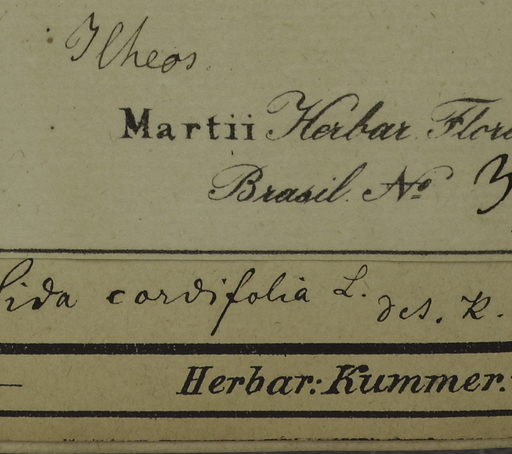 Ilheos.
Martii Herbar. Flor
Brasil. No 3
Sida cordifolia L. det. K.
Herbar: Kummer.